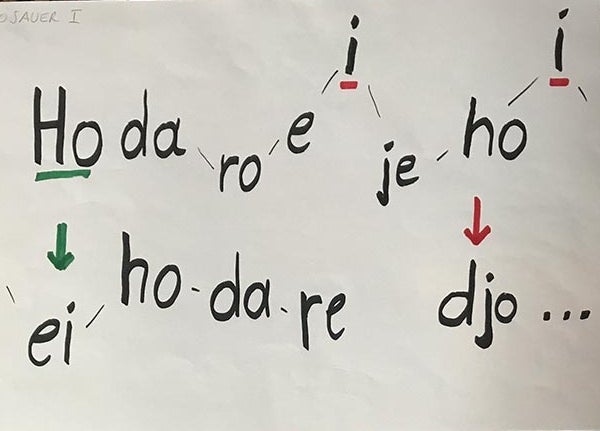 OJAUER I
Ho da ro e i je ho i
ei ho-da-re djo ...